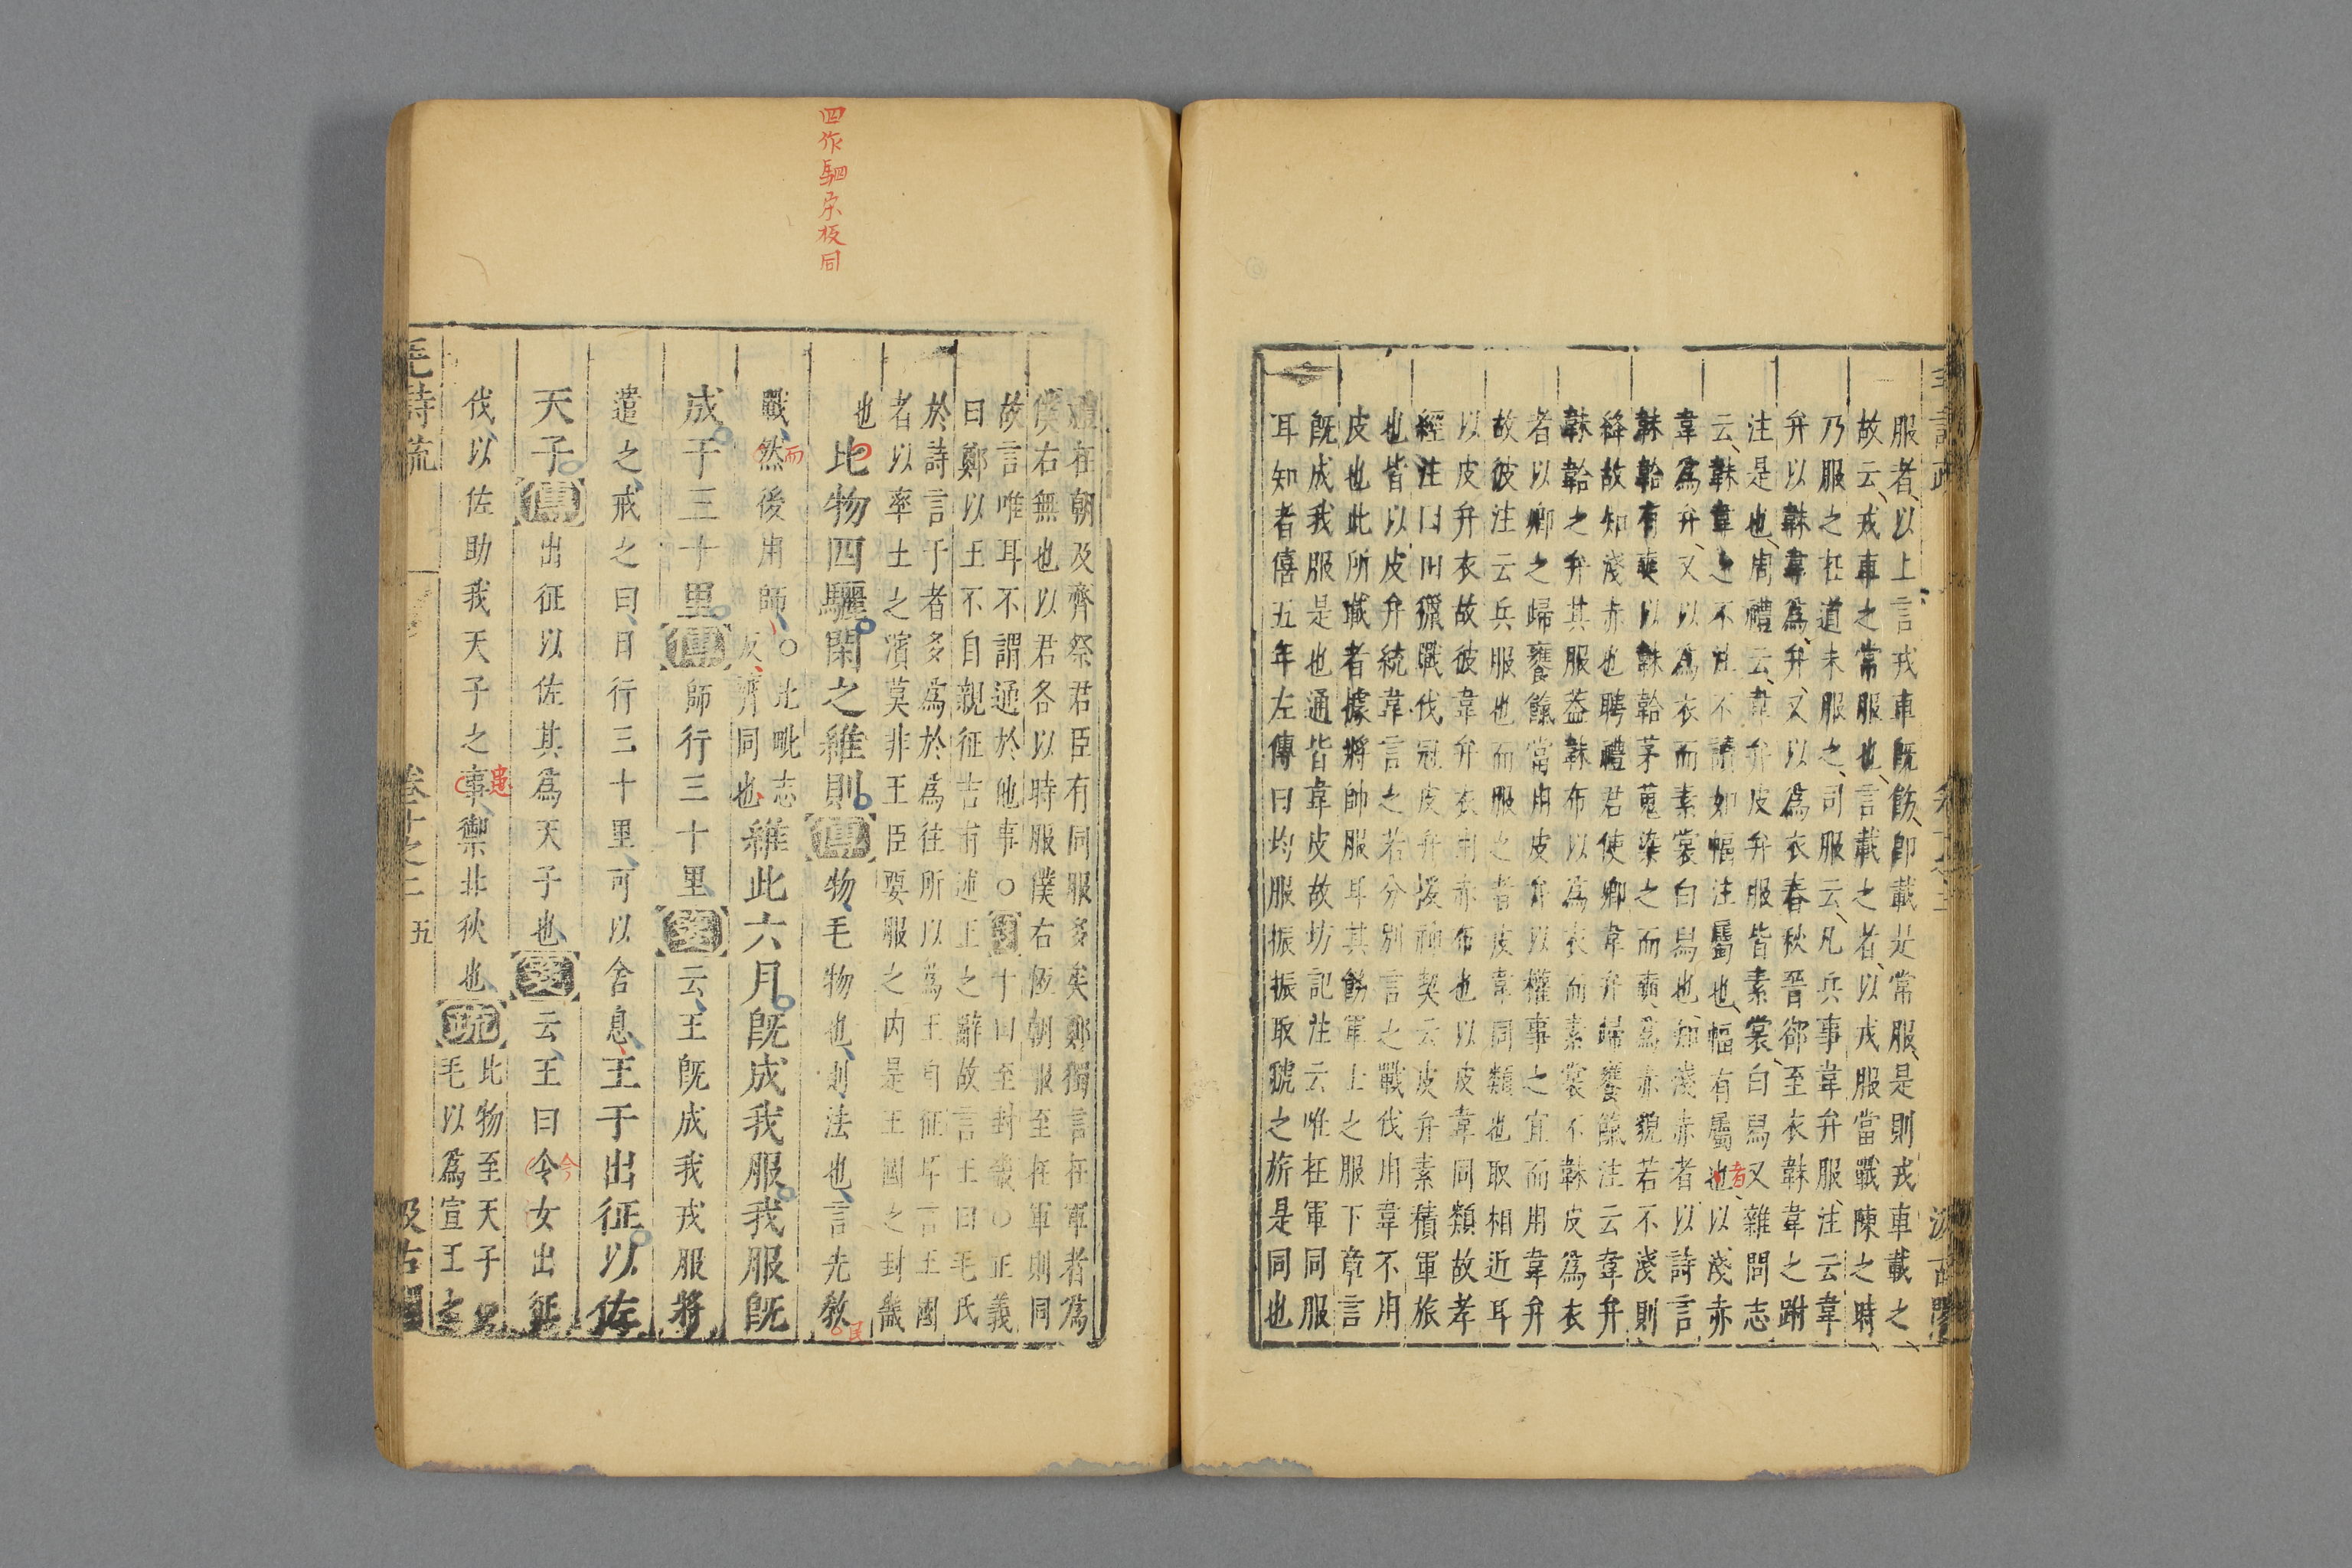 毛詩疏 卷十之二 汲古閣
服者以上言戎車既飭即載是常服是則戎車載之
故云戎車之常服也言載之者以戎服當戰陳之時
乃服之在道未服之司服云凡兵事韋弁服注云韋
弁以韎韋為弁又以為衣春秋晉郤至衣韎韋之跗
注是也周禮云韋弁皮弁服皆素裳白舄又雜問志
云韎韋之不注不讀如幅注屬也幅有屬也以淺赤
者
韋為弁又以為衣而素裳白舄也知淺赤者以詩言
韎韐有奭以韎韐茅蒐染之而奭為赤貌若不淺則
絳故知淺赤也聘禮君使卿韋弁歸饔餼注云韋弁
韎韐之弁其服葢韎布以為衣而素裳不韎皮為衣
者以卿之歸饔餼當用皮弁以權事之宜而用韋弁
故彼注云兵服也而服之者皮韋同類也取相近耳
以皮弁衣故彼韋弁衣用赤布也以皮韋同類故孝
經注曰田獵戰伐冠皮弁援神契云皮弁素積軍旅
也皆以皮弁統韋言之若分別言之戰伐用韋不用
皮也此所職者據將帥服耳其餝軍上之服下章言
既成我服是也通皆韋皮故坊記注云唯在軍同服
耳知者僖五年左傳曰均服振振取虢之旂是同也
四作駟宋板同
禮在朝及齊祭君臣有同服多矣鄭獨言在軍者為
僕右無也以君各以時服僕右恆朝服至在軍則同
故言唯耳不謂通於他事○箋于曰至封畿○正義
曰鄭以王不自親征吉甫述王之辭故言王曰毛氏
於詩言于者多為於為往所以為王自征耳言王國
者以率土之濱莫非王臣要服之內是王國之封畿
也
比物四驪閑之維則傳物毛物也則法也言先教
民
戰然後用師○比毗志反齊同也維此六月既成我服我服既
而
成于三十里傳師行三十里箋云王既成我戎服將
遣之戒之曰日行三十里可以舍息王于出征以佐
天子傳出征以佐其為天子也箋云王曰令女出征
今
伐以佐助我天子之事禦北狄也疏此物至天子毛以為宣王之
患
毛詩疏 卷十之二 五 汲古閣